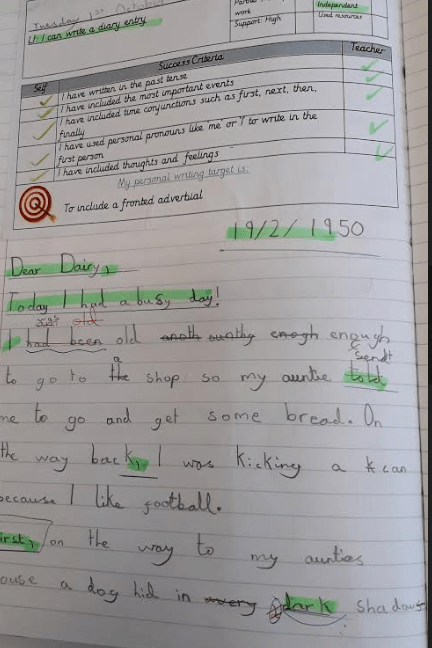 Tuesday 1st October
LI: I can write a diary entry
work
Support: High
Independent
Used resources
Success Criteria
Self
Teacher
I have written in the past tense
I have included the most important events
I have included time conjunctions such as first, next, then,
finally
I have used personal pronouns like 'me' or 'I' to write in the
first person
I have included thoughts and feelings
My personal writing target is:
To include a fronted adverbial
19/2/1950
Dear Dairy,
Today I had a busy day!
old
I had been old enough enough
a sendt
to go to the shop so my auntie told
me to go and get some bread. On
the way back, I was kicking a can
because I like football.
irst, on the way to my aunties
ouse a dog hid in dark shadows